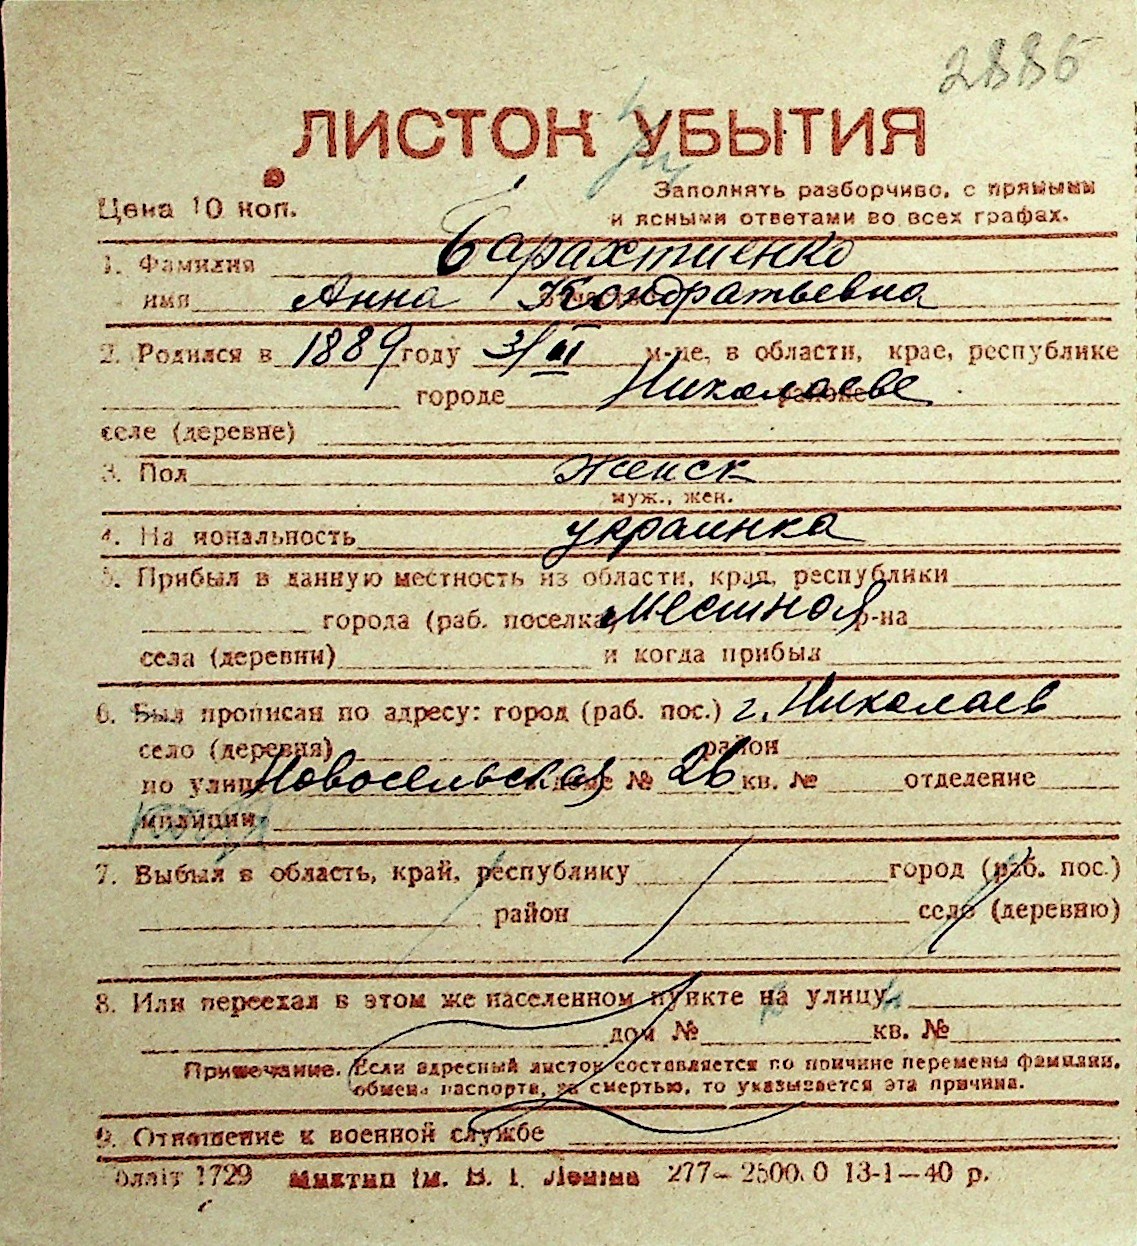 2886
ЛИСТОК УБЫТИЯ
Цена 10 коп.
Заполнять разборчиво, с прямыми
и ясными ответами во всех графах.
1. Фамилия Барахтиенко
имя Анна Кондратьевна
2. Родился в 1889 году 3/II м-це, в области, крае, республике
городе Николаеве
селе (деревне)
3. Пол женск
муж., жен.
4. На иональность украинка
5. Прибыл в данную местность из области, края, республики
города (раб. поселка) местная р-на
села (деревни) и когда прибыл
6. Был прописан по адресу: город (раб. пос.) г. Николаев
село (деревня) район
по улице Новосельская доме № 26 кв. № отделение
милиции
7. Выбыл в область, край, республику город (раб. пос.)
район село (деревню)
8. Или переехал в этом же населенном пункте на улицу
дом № кв. №
Примечание. Если адресный листок составляется по причине перемены фамилии,
обмена паспорта, за смертью, то указывается эта причина.
9. Отношение к военной службе
1729 Миктип ім. В. І. Леніна 277–2500.0 13-1–40 р.